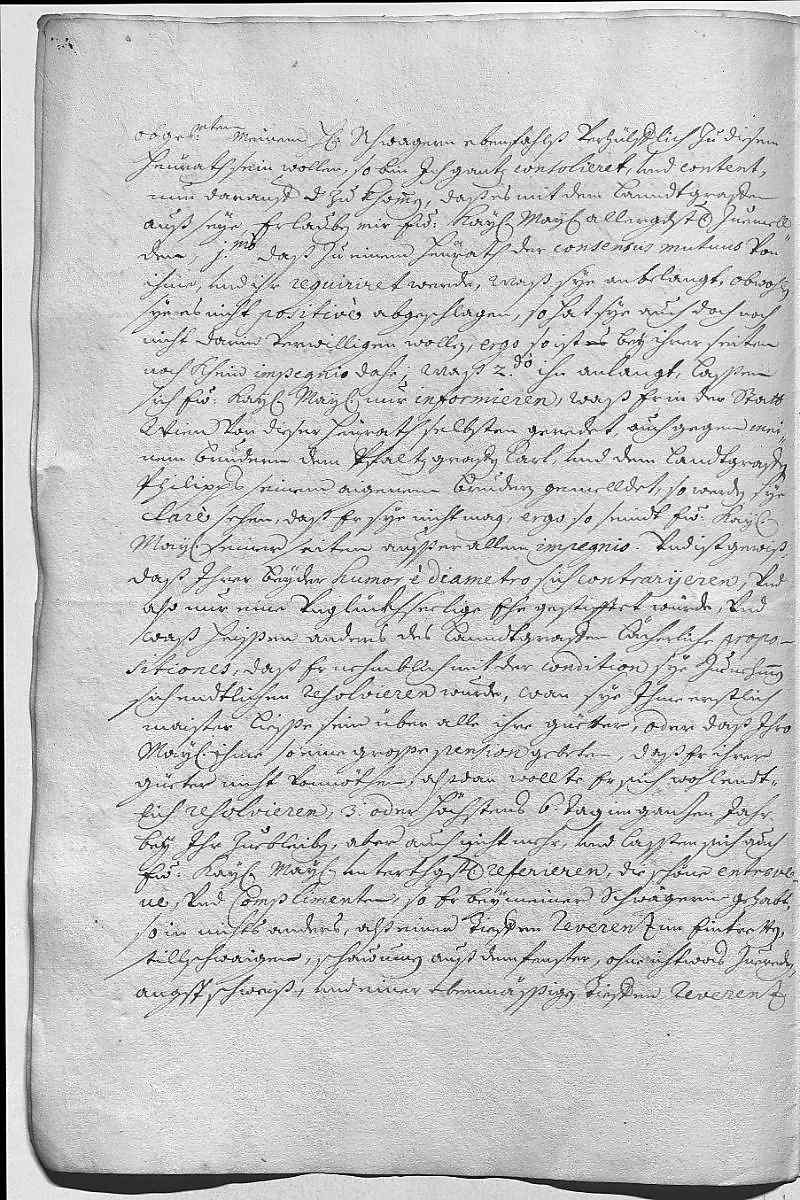 obges:ᵐᵗᵉⁿ Meinem H: Schwagern ebenfahlß verhülfflich zu diesem
Heurath sein wollen, so bin Ich gantz consolieret, und content,
nun darauff zu khomen, daß es mit dem Landtgraffen
auß seye, Erlauben mir Eur: Kayl: Mayl: allergdst Zuemell
den, j.ᵐᵒ daß zu einem Heurath der consensus mutuus von
ihme, und ihr requiriret werde, Waß sye anbelangt, obwohl
sye es nicht positivè abgeschlagen, so hat sye auch doch noch
nicht darin verwilligen wollen, ergo so ist es bey ihrer seiten
noch khein impegnio dahe; Waß 2.ᵈᵒ ihn anlangt, lassen
sich Eur: Kayl: Mayl: nur informieren, waß Er in der Statt
Wien von dieser Heurath selbsten geredet, auch gegen mei-
nem Bruedern dem Pfaltzgraffen Carl, und dem Landtgraffen
Philipps seinem aigenem Bruder gemelldet, so werden sye
clarè sehen, daß Er sye nicht mag, ergo so seindt Eur: Kayl:
Mayl: seiner seiten ausser allem impegnio. Und ist gewiß,
daß Ihrer beyder humor è diametro sich contrarijeren, Und
also nur eine Unglückhseelige Ehe gestifftet würde, Und
waß heissen anders des Landtgraffen lächerliche propo-
sitiones, daß Er nehmblich mit der condition sye Zunehmen
sich endtlichen resolvieren wurde, wan sye Ihme erstlich
maister liesse sein über alle ihre güetter, oder daß Ihro
Mayl: ihme so eine grosse pension geben, daß Er ihrer
güeter nicht vonnöthen, alßdan wollte Er sich wohl endt-
lich resolvieren, 3. oder höchstens 6. Tag im gantzen Jahr
bey Ihr Zuebleiben, aber auch nicht mehr, und lassen sich auch
Eur: Kayl: Mayl: unterthgst referieren, die schöne entreve-
ue, Und Complimenten, so Er bey meiner Schwägerin gehabt,
so in nichts anders, alß einer tieffen Reverentz im Eintretten,
stillschwaigen, schauung auß dem fenster, ohne ichtwas Zuereden,
angstschweiß, und einer ebenmässigen tieffen Reverentz